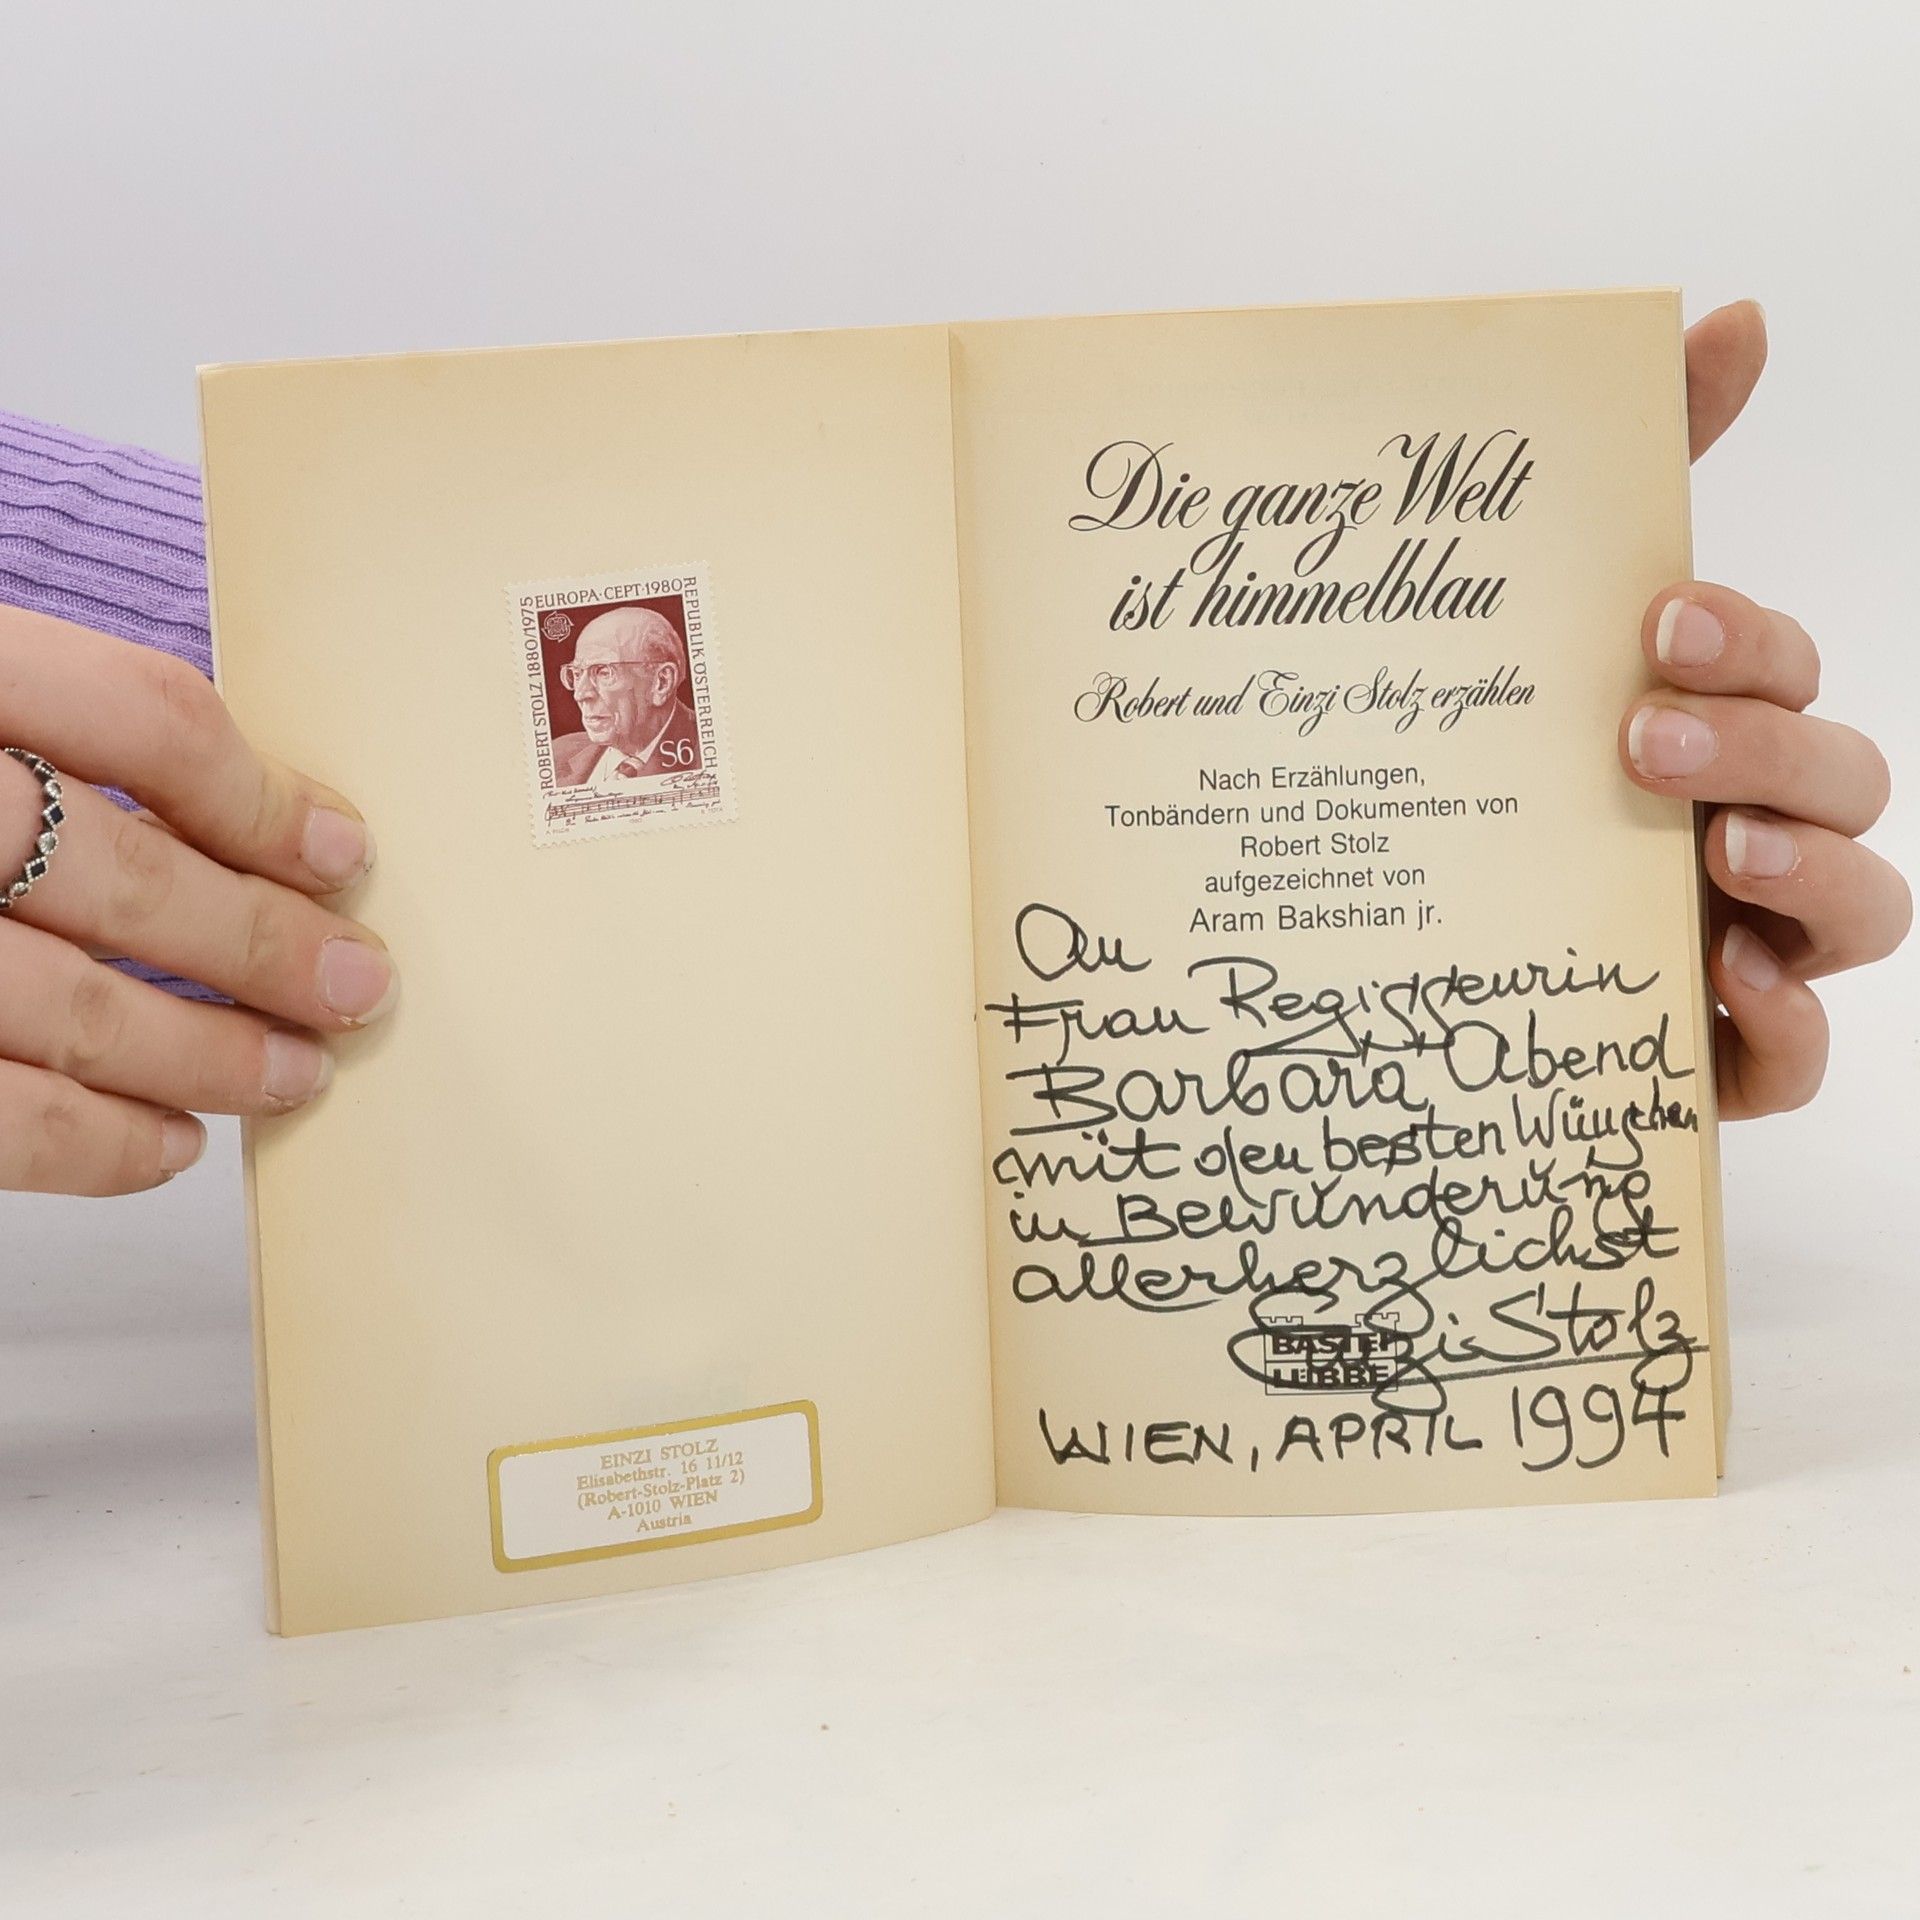 EUROPA·CEPT·1980
ROBERT STOLZ 1880/1975
REPUBLIK ÖSTERREICH
S6
EINZI STOLZ
Elisabethstr. 16 11/12
(Robert-Stolz-Platz 2)
A-1010 WIEN
Austria
Die ganze Welt
ist himmelblau
Robert und Einzi Stolz erzählen
Nach Erzählungen,
Tonbändern und Dokumenten von
Robert Stolz
aufgezeichnet von
Aram Bakshian jr.
An
Frau Regisseurin
Barbara Abend
mit den besten Wünschen
in Bewunderung
allerherzlichst
Einzi Stolz
BASTEI
LÜBBE
WIEN, APRIL 1994